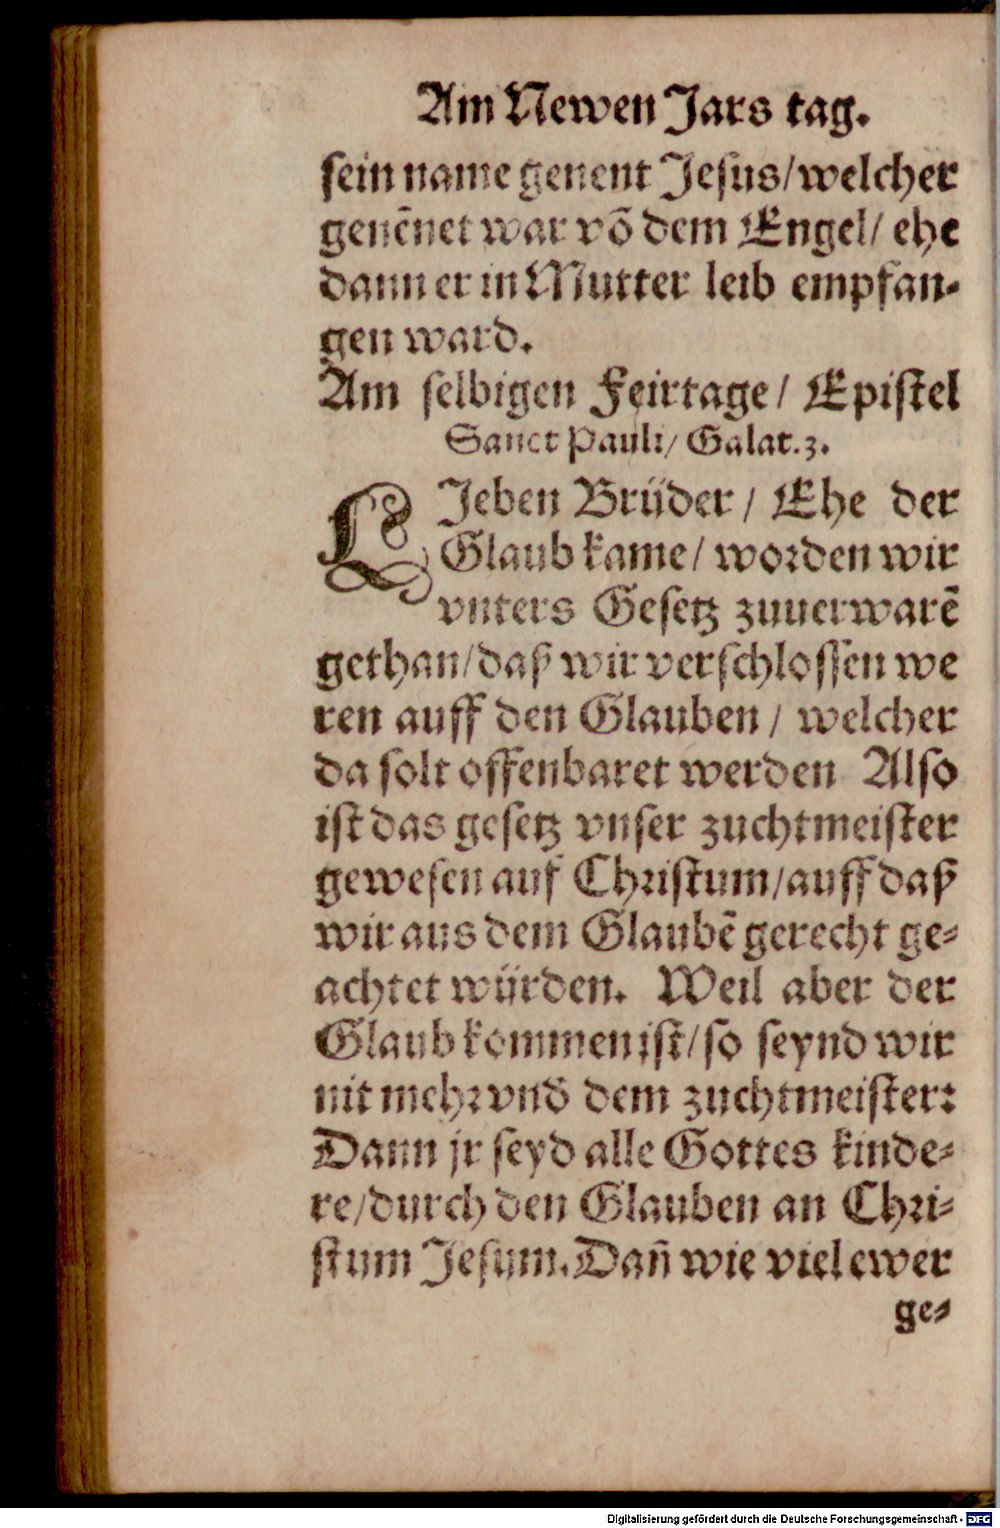 Am Newen Jars tag.
sein name genent Jesus/welcher
genēnet war võ dem Engel/ ehe
dann er in Mutter leib empfan-
gen ward.
Am selbigen Feirtage/ Epistel
Sanct Pauli/ Galat.3.
LJeben Brüder/ Ehe der
Glaub kame/ worden wir
vnters Gesetz zuuerwarē
gethan/daß wir verschlossen we
ren auff den Glauben/ welcher
da solt offenbaret werden Also
ist das gesetz vnser zuchtmeister
gewesen auf Christum/auff daß
wir aus dem Glaubē gerecht ge-
achtet würden. Weil aber der
Glaub kommen ist/so seynd wir
nit mehr vnd̄ dem zuchtmeister:
Dann jr seyd alle Gottes kinde-
re/durch den Glauben an Chri-
stum Jesum. Dañ wie viel ewer
ge-
Digitalisierung gefördert durch die Deutsche Forschungsgemeinschaft - DFG